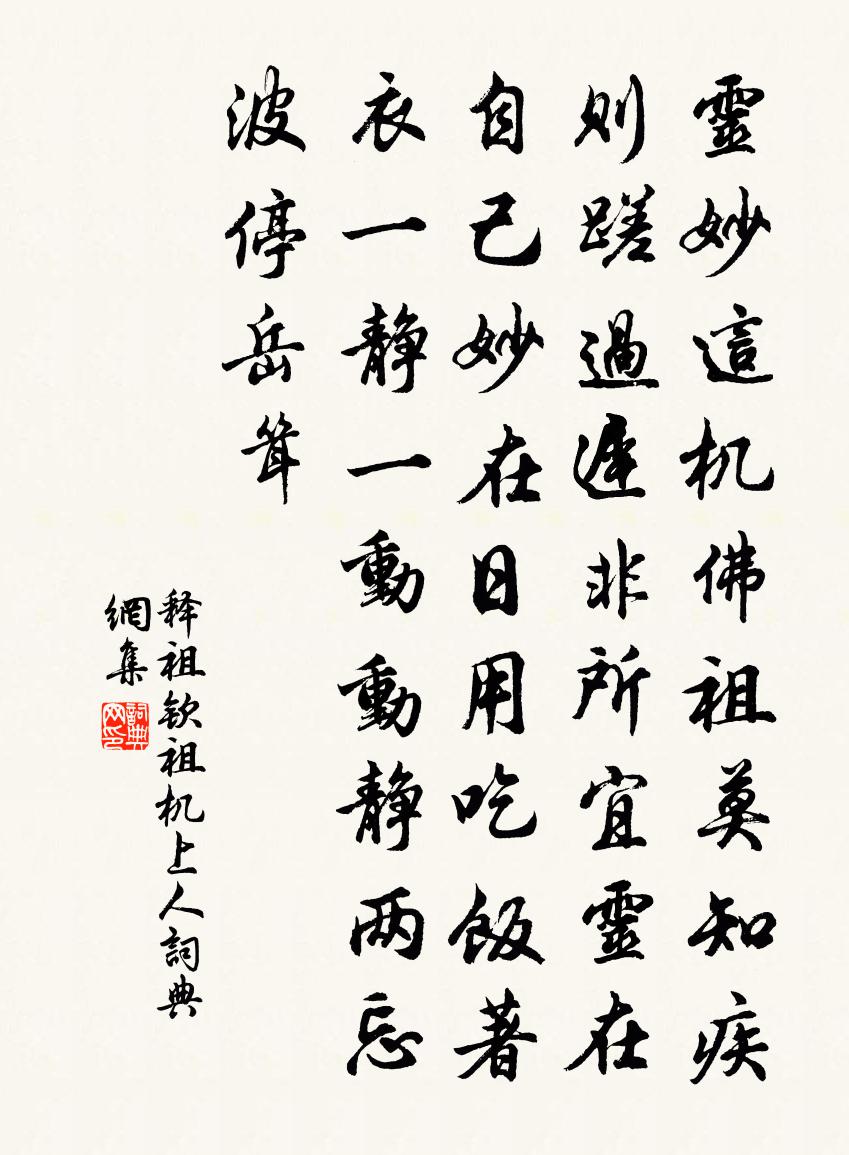 靈妙這机佛祖莫知疾
則蹉過遲非所宜靈在
自己妙在日用吃飯著
衣一静一動動静两忘
波停岳耸
释祖钦祖机上人詞典
網集
詞典
网印